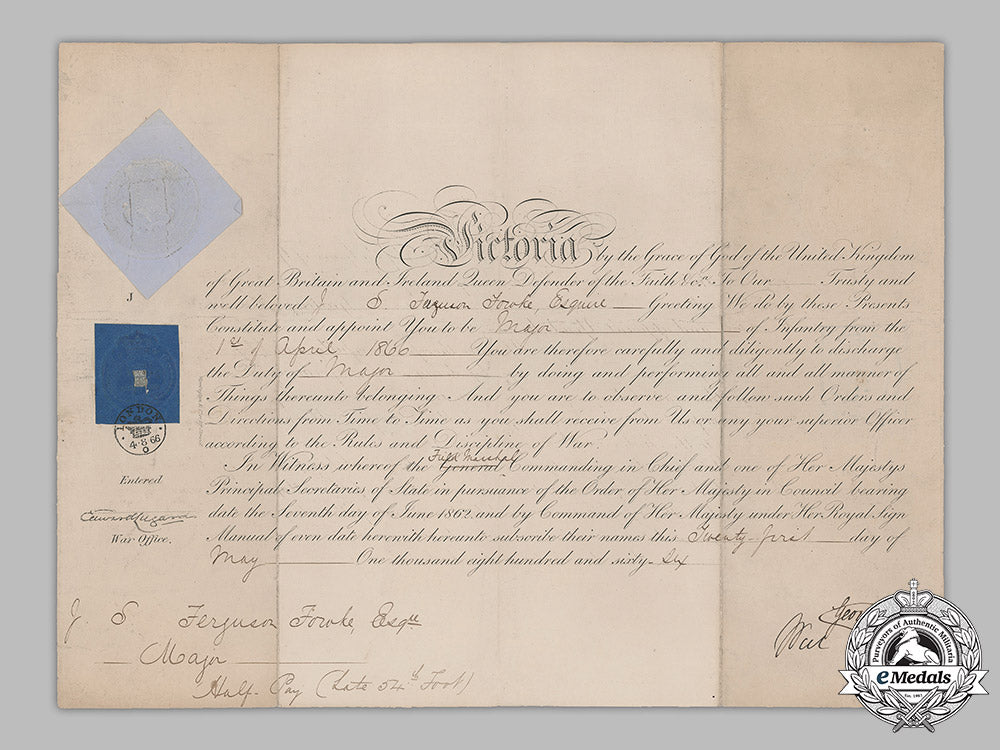 Victoria by the Grace of God of the United Kingdom
of Great Britain and Ireland Queen Defender of the Faith &c&c To Our Trusty and
well beloved J S Ferguson Fowke, Esquire Greeting We do by these Presents
Constitute and appoint You to be Major of Infantry from the
1st of April 1866 You are therefore carefully and diligently to discharge
the Duty of Major by doing and performing all and all manner of
Things thereunto belonging And you are to observe and follow such Orders and
Directions from Time to Time as you shall receive from Us or any your superior Officer
according to the Rules and Discipline of War.
In Witness whereof the General Field Marshal Commanding in Chief and one of Her Majestys
Principal Secretaries of State in pursuance of the Order of Her Majesty in Council bearing
date the Seventh day of June 1862 and by Command of Her Majesty under Her Royal Sign
Manual of even date herewith hereunto subscribe their names this Twenty-first day of
May One thousand eight hundred and sixty-Six
J
LONDON
4·8·66
O
Entered
Edward Lugard
War Office.
J S Ferguson Fowke, Esqre
Major
Half-Pay (Late 54th Foot)
Geor
Purveyors of Authentic Militaria
eMedals